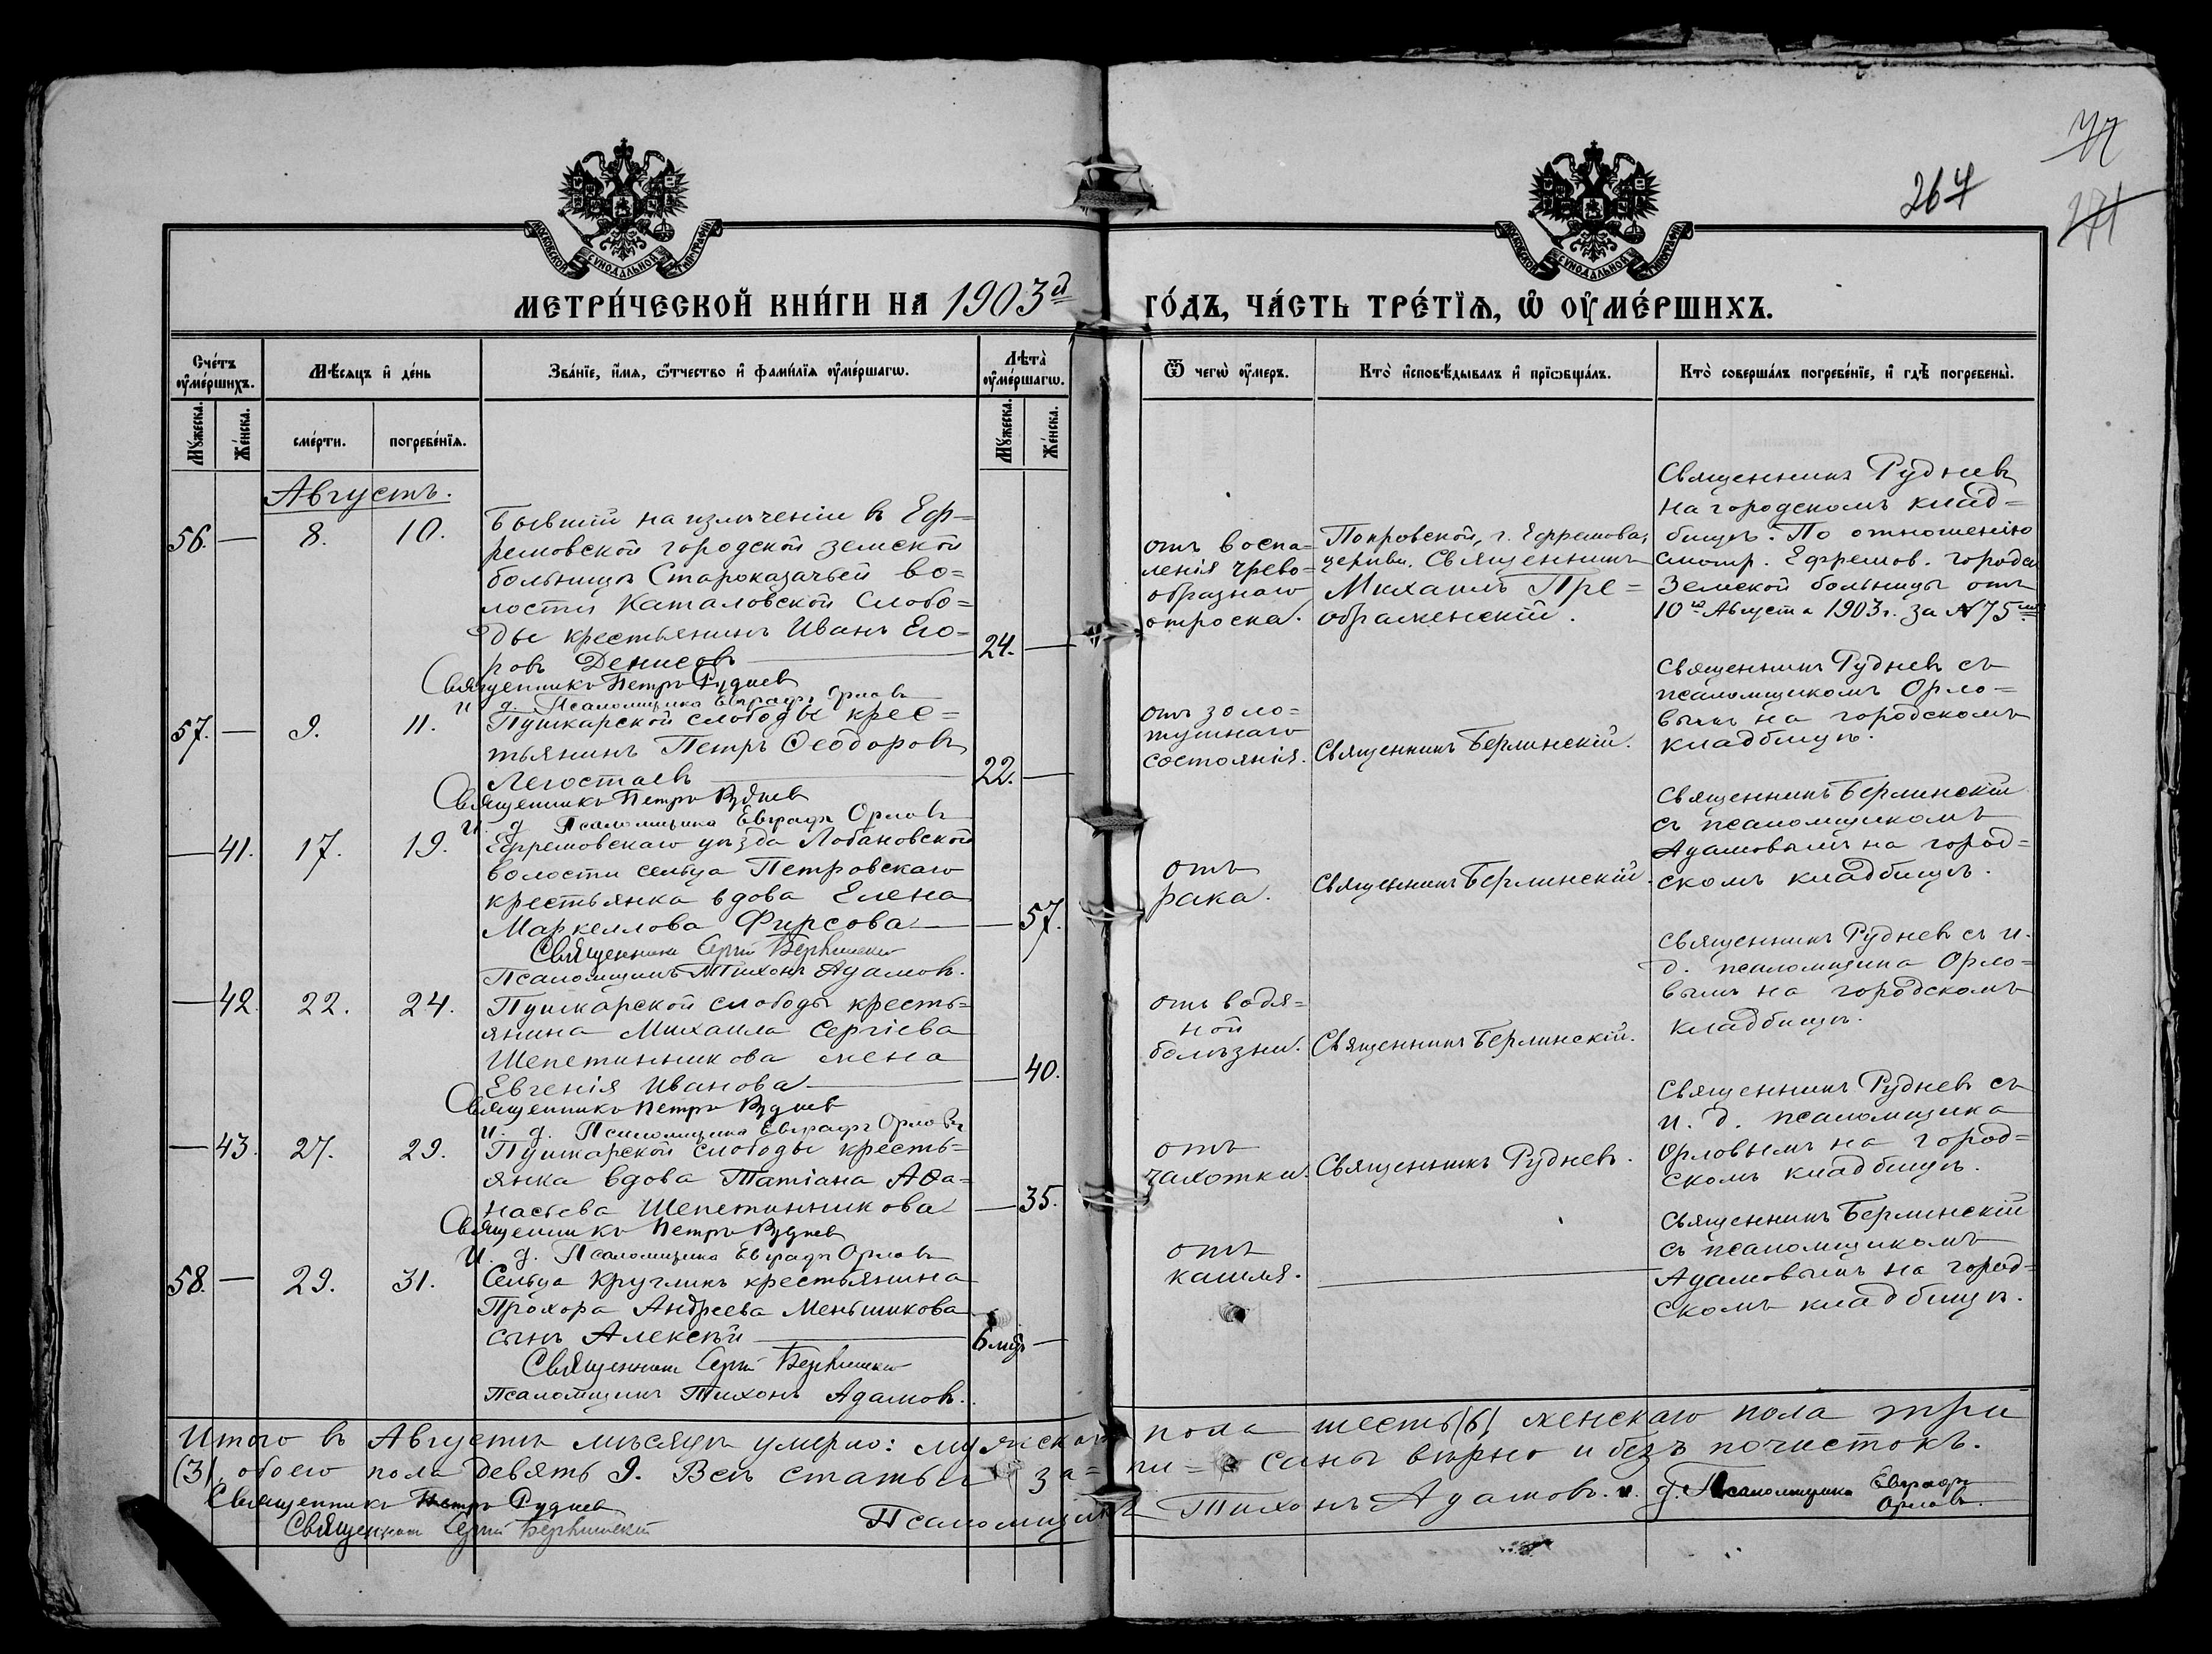 267
МОСКОВСКОЙ СѴНОДАЛЬНОЙ ТИПОГРАФІИ
МОСКОВСКОЙ СѴНОДАЛЬНОЙ ТИПОГРАФІИ
МЕТРИ́ЧЕСКОЙ КНИ́ГИ НА 1903й ГО́ДЪ, ЧА́СТЬ ТРЕ́ТЇѦ, Ѡ҆ ОУ҆МЕ́РШИХЪ.
Сче́тъ оу҆ме́ршихъ.
Мꙋ́жеска.
Же́нска.
Мѣ́сяцъ и҆ де́нь
сме́рти.
погребе́нїѧ.
Зва́нїе, и҆́мѧ, ѻ҆́тчество и҆ фами́лїѧ оу҆ме́ршагѡ.
Лѣ́та оу҆ме́ршагѡ.
Мꙋ́жеска.
Же́нска.
Ѿ чегѡ̀ оу҆́меръ.
Кто̀ и҆сповѣ́дывалъ и҆ прїѡбща́лъ.
Кто̀ соверша́лъ погребе́нїе, и҆ гдѣ̀ погребены̀.
Августъ.
56. — 8. 10.
Бывшій на излѣченіи въ Еф=
ремовской городской земской
больницѣ Староказачьей во=
лости Каталовской Слобо=
ды крестьянинъ Иванъ Его=
ровъ Денисовъ
24. —
отъ воспа=
ленія чрево=
образнаго
отроска.
Покровской, г. Ефремова,
церкви, Священникъ
Михаилъ Пре=
ображенскій.
Священникъ Рудневъ
на городскомъ клад=
бищѣ. По отношенію
смотр. Ефремов. городск
Земской больницы отъ
10го Августа 1903 г. за № 75
Священникъ Петръ Рудневъ
и. д. Псаломщика Евграфъ Орловъ
57. — 9. 11.
Пушкарской слободы крес=
тьянинъ Петръ Ѳеодоровъ
Легостаевъ
22. —
отъ золо=
тушнаго
состоянія.
Священникъ Берлинскій.
Священникъ Рудневъ съ
псаломщикомъ Орло=
вымъ на городскомъ
кладбищѣ.
Священникъ Петръ Рудневъ
и. д. Псаломщика Евграфъ Орловъ
— 41. 17. 19.
Ефремовскаго уѣзда Лобановской
волости сельца Петровскаго
крестьянка вдова Елена
Маркеллова Фирсова
— 57.
отъ
рака.
Священникъ Берлинскій.
Священникъ Берлинскій
съ псаломщикомъ
Адамовымъ на город=
скомъ кладбищѣ.
Священникъ Сергій Берлинскій
Псаломщикъ Тихонъ Адамовъ.
— 42. 22. 24.
Пушкарской слободы кресть=
янина Михаила Сергіева
Шепетинникова жена
Евгенія Иванова
— 40.
отъ водя=
ной
болѣзни.
Священникъ Берлинскій.
Священникъ Рудневъ съ и.
д. псаломщика Орло=
вымъ на городскомъ
кладбищѣ.
Священникъ Петръ Рудневъ
и. д. Псаломщика Евграфъ Орловъ
— 43. 27. 29.
Пушкарской слободы кресть=
янка вдова Татіана Аѳа=
насьева Шепетинникова
— 35.
отъ
чахотки.
Священникъ Рудневъ.
Священникъ Рудневъ съ
и. д. псаломщика
Орловымъ на город=
скомъ кладбищѣ.
Священникъ Петръ Рудневъ
И. д. Псаломщика Евграфъ Орловъ
58. — 29. 31.
Сельца Кругликъ крестьянина
Прохора Андреева Меньшикова
сынъ Алексѣй
6 мѣс —
отъ
кашля.
Священникъ Берлинскій
съ псаломщикомъ
Адамовымъ на город=
скомъ кладбищѣ.
Священникъ Сергій Берлинскій
Псаломщикъ Тихонъ Адамовъ.
Итого въ Августѣ мѣсяцѣ умерло: мужскаго пола шесть (6), женскаго пола три
(3), обоего пола девять 9. Всѣ статьи за= пи= саны вѣрно и безъ почистокъ.
Священникъ Петръ Рудневъ
Священникъ Сергій Берлинскій
Псаломщикъ Тихонъ Адамовъ. и. д. Псаломщика Евграфъ
Орловъ.